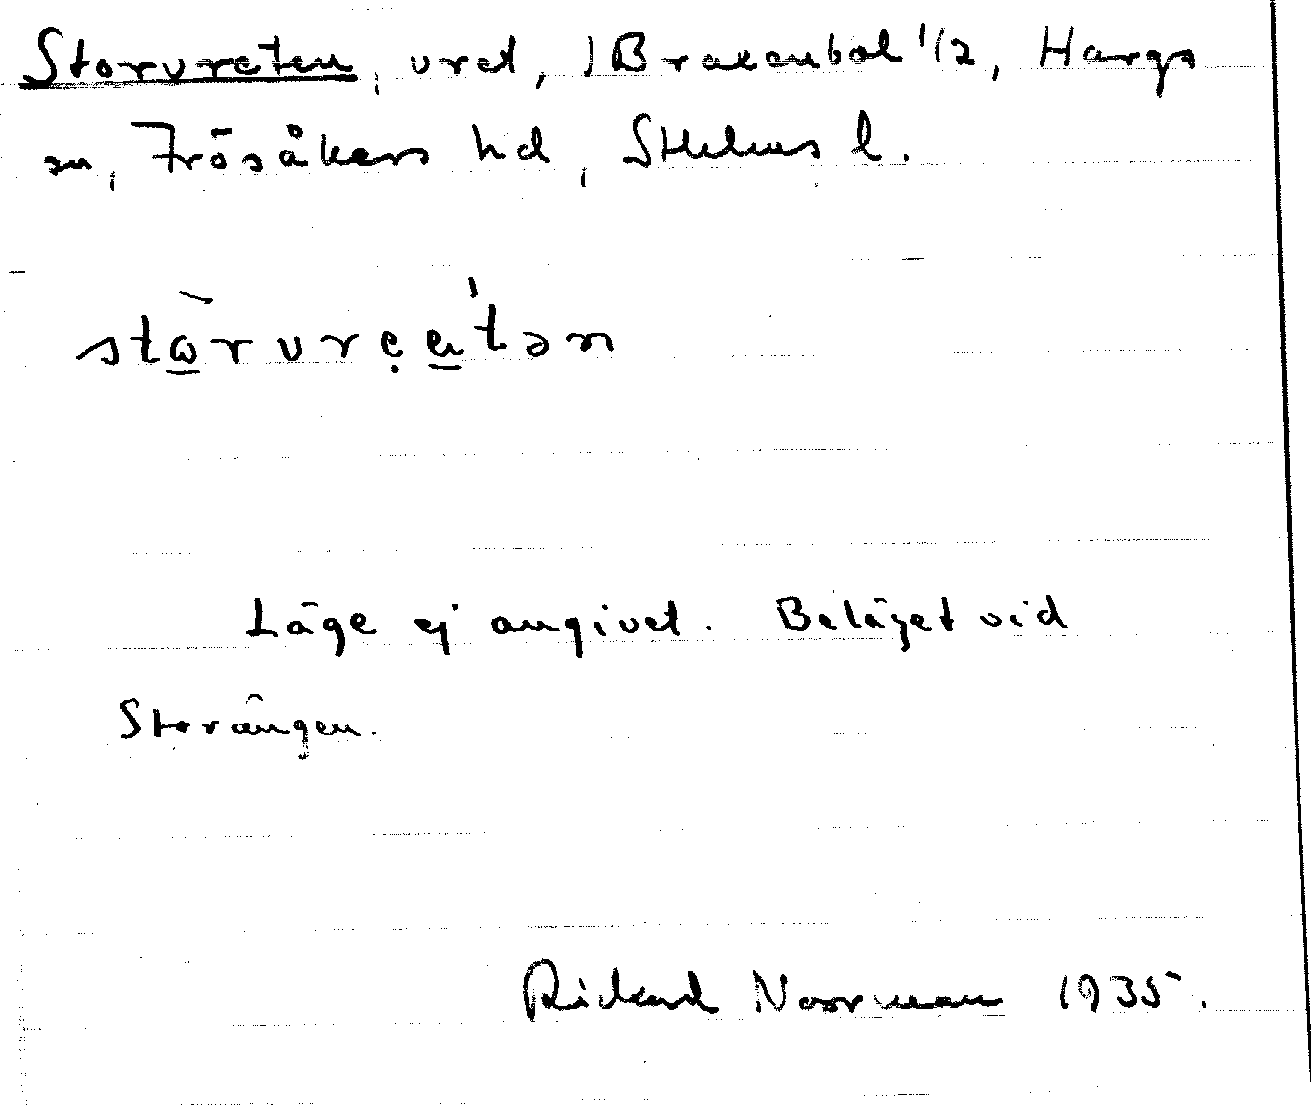 Storvreten, vret, Brakenbol 1/2, Hargs
sn, Frösåkers hd, Sthlms l.
stɷ̀rvrẹe̲tən
Läge ej angivet. Beläget vid
Storängen.
Rickard Noorman 1935.